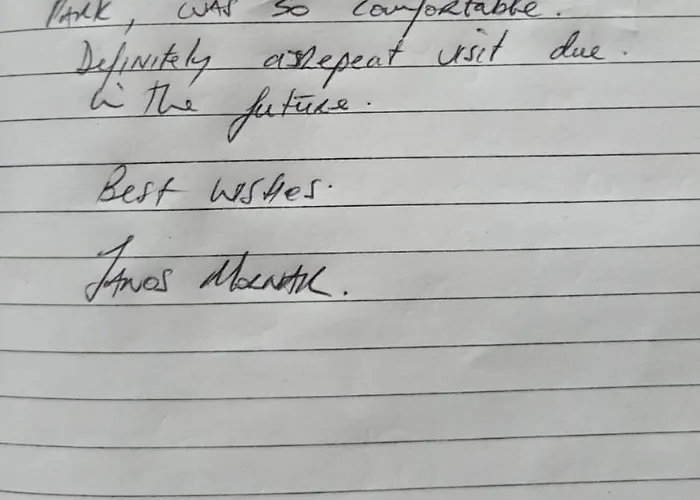 PARK, WAS SO comfortable.
Definitely a repeat visit due.
in the future.
Best wishes.
Janos Molnar.